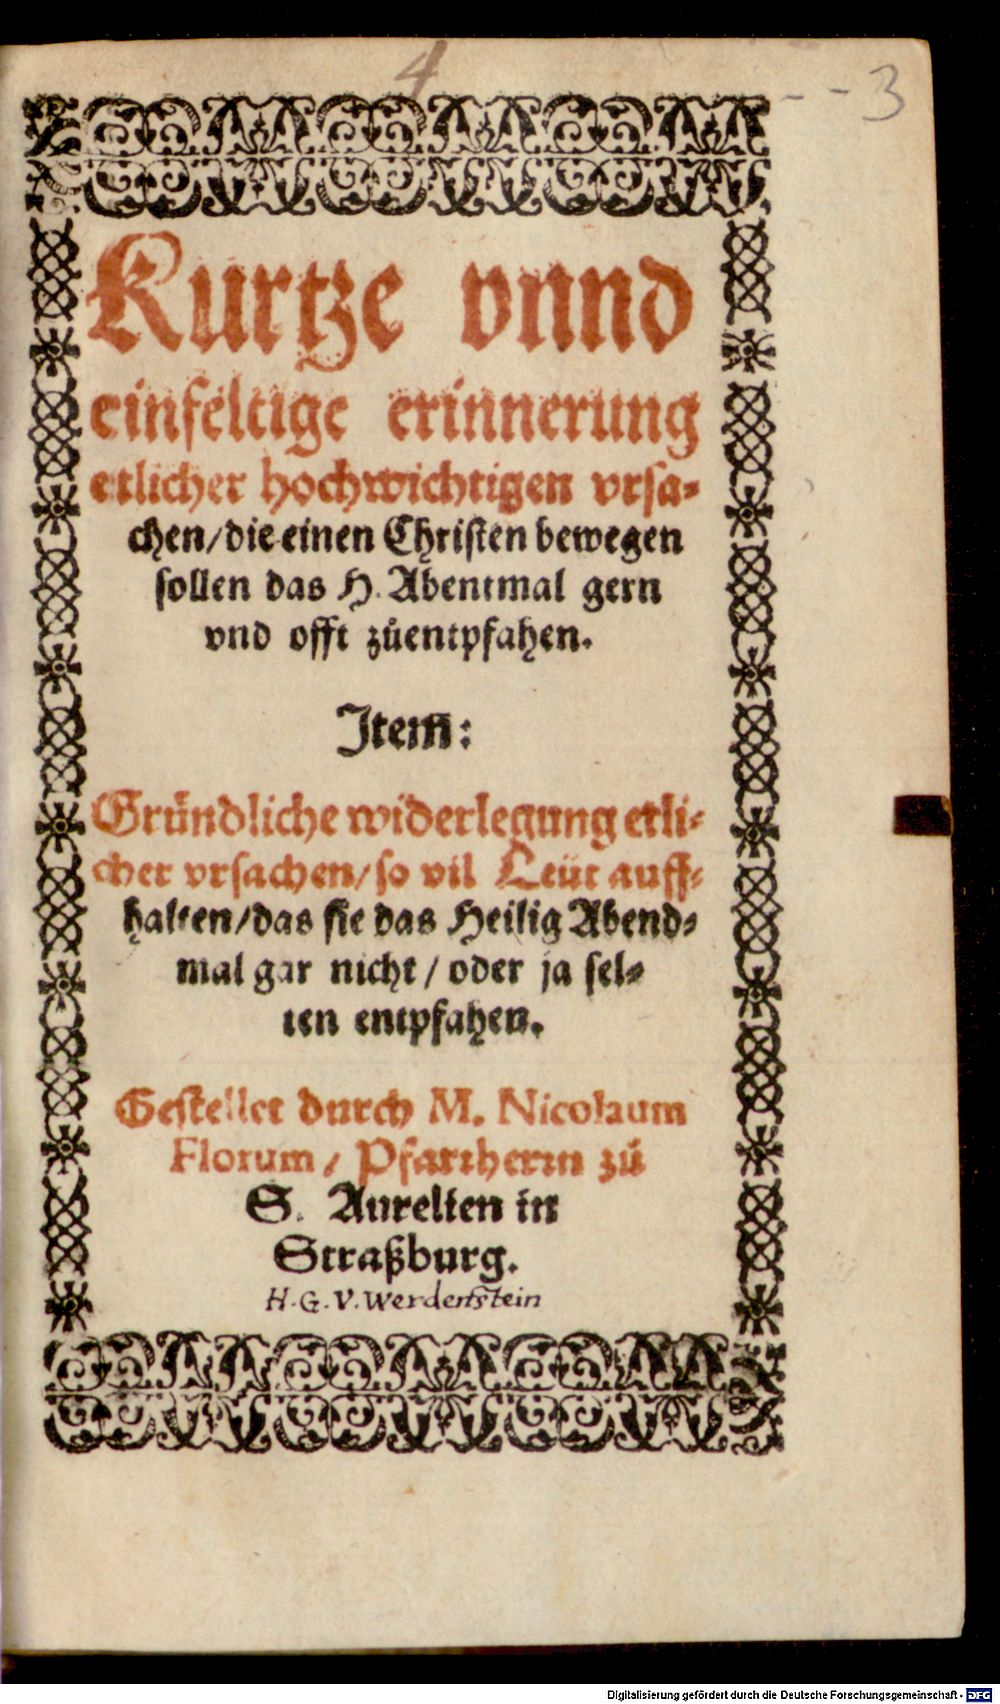 4
3
Kurtze vnnd
einfeltige erinnerung
etlicher hochwichtigen vrsa-
chen/die einen Christen bewegen
sollen das H. Abentmal gern
vnd offt zůentpfahen.
Item̃:
Gründliche widerlegung etli-
cher vrsachen/so vil Leüt auff-
halten/das sie das Heilig Abend-
mal gar nicht/oder ja sel-
ten entpfahen.
Gestellet durch M. Nicolaum
Florum/Pfarrherrn zů
S. Aurelien in
Straßburg.
H. G. V. Werdenstein
Digitalisierung gefördert durch die Deutsche Forschungsgemeinschaft - DFG